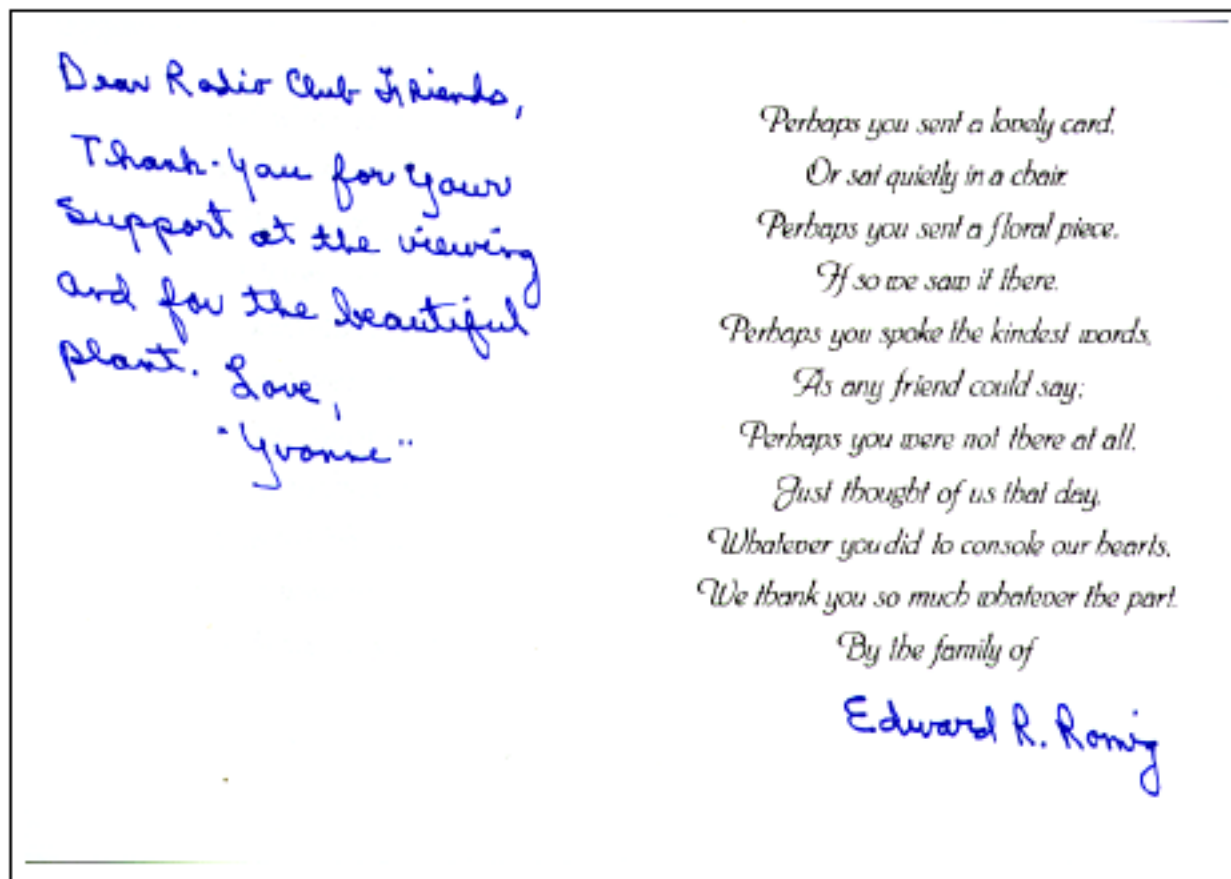 Dear Radio Club Friends,
Thank-you for your
Support at the viewing
and for the beautiful
plant. Love,
"Yvonne"
Perhaps you sent a lovely card,
Or sat quietly in a chair.
Perhaps you sent a floral piece,
If so we saw it there.
Perhaps you spoke the kindest words,
As any friend could say;
Perhaps you were not there at all,
Just thought of us that day,
Whatever you did to console our hearts,
We thank you so much whatever the part.
By the family of
Edward R. Romig